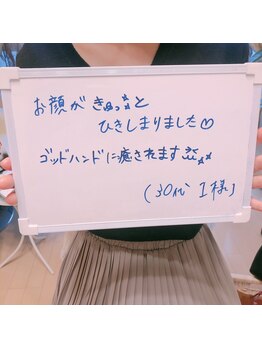 お顔がきゅっと
ひきしまりました♡
ゴッドハンドに癒されます
(30代 I様)